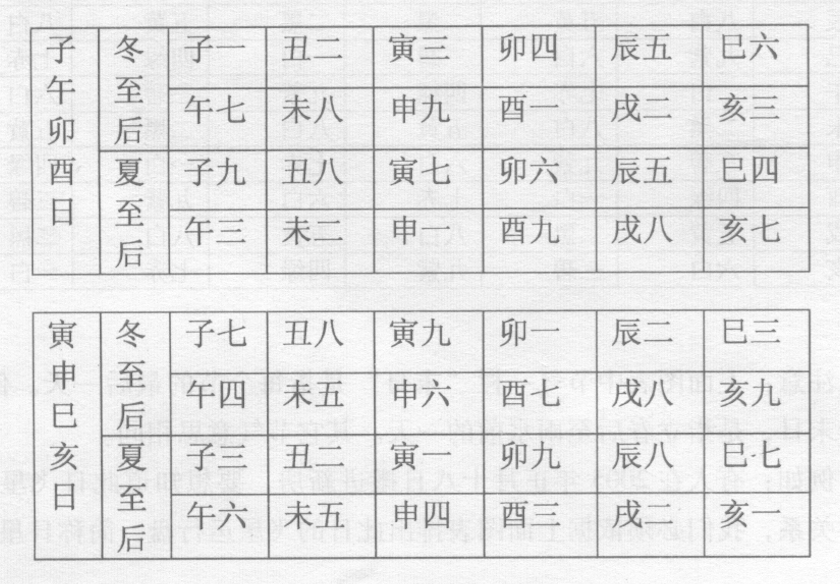 子午卯酉日
冬至后
子一 丑二 寅三 卯四 辰五 巳六
午七 未八 申九 酉一 戌二 亥三
夏至后
子九 丑八 寅七 卯六 辰五 巳四
午三 未二 申 酉九 戌八 亥七
寅申巳亥日
冬至后
子七 丑八 寅九 卯一 辰二 巳三
午四 未五 申六 酉七 戌八 亥九
夏至后
子三 丑二 寅一 卯九 辰八 巳七
午六 未五 申四 酉三 戌 亥一